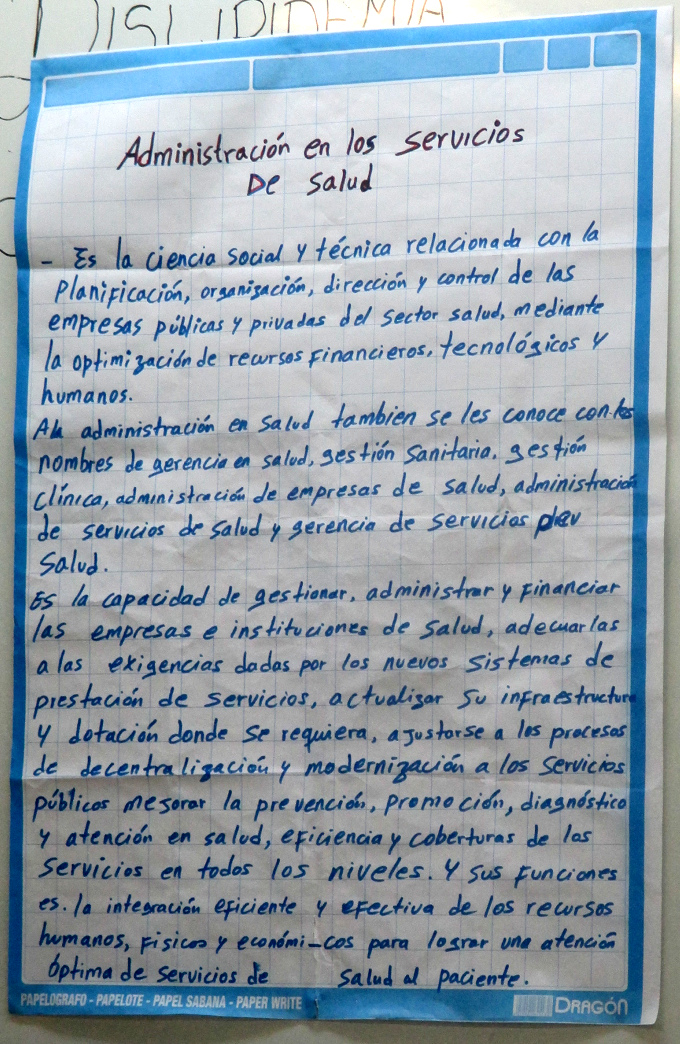 DISLIPIDEMIA
Administración en los servicios
De salud
- Es la ciencia social y técnica relacionada con la
planificación, organización, dirección y control de las
empresas públicas y privadas del sector salud, mediante
la optimización de recursos financieros, tecnológicos y
humanos.
A la administración en salud tambien se les conoce con los
nombres de gerencia en salud, gestión sanitaria, gestión
clínica, administración de empresas de salud, administración
de servicios de salud y gerencia de servicios
salud.
Es la capacidad de gestionar, administrar y financiar
las empresas e instituciones de salud, adecuarlas
a las exigencias dadas por los nuevos sistemas de
prestación de servicios, actualizar su infraestructura
y dotación donde se requiera, ajustarse a los procesos
de decentralización y modernización a los servicios
públicos mejorar la prevención, promoción, diagnóstico
y atención en salud, eficiencia y coberturas de los
servicios en todos los niveles. Y sus funciones
es. la integración eficiente y efectiva de los recursos
humanos, físicos y económi-cos para lograr una atención
óptima de servicios de salud al paciente.
PAPELOGRAFO - PAPELOTE - PAPEL SABANA - PAPER WRITE
DRAGÓN